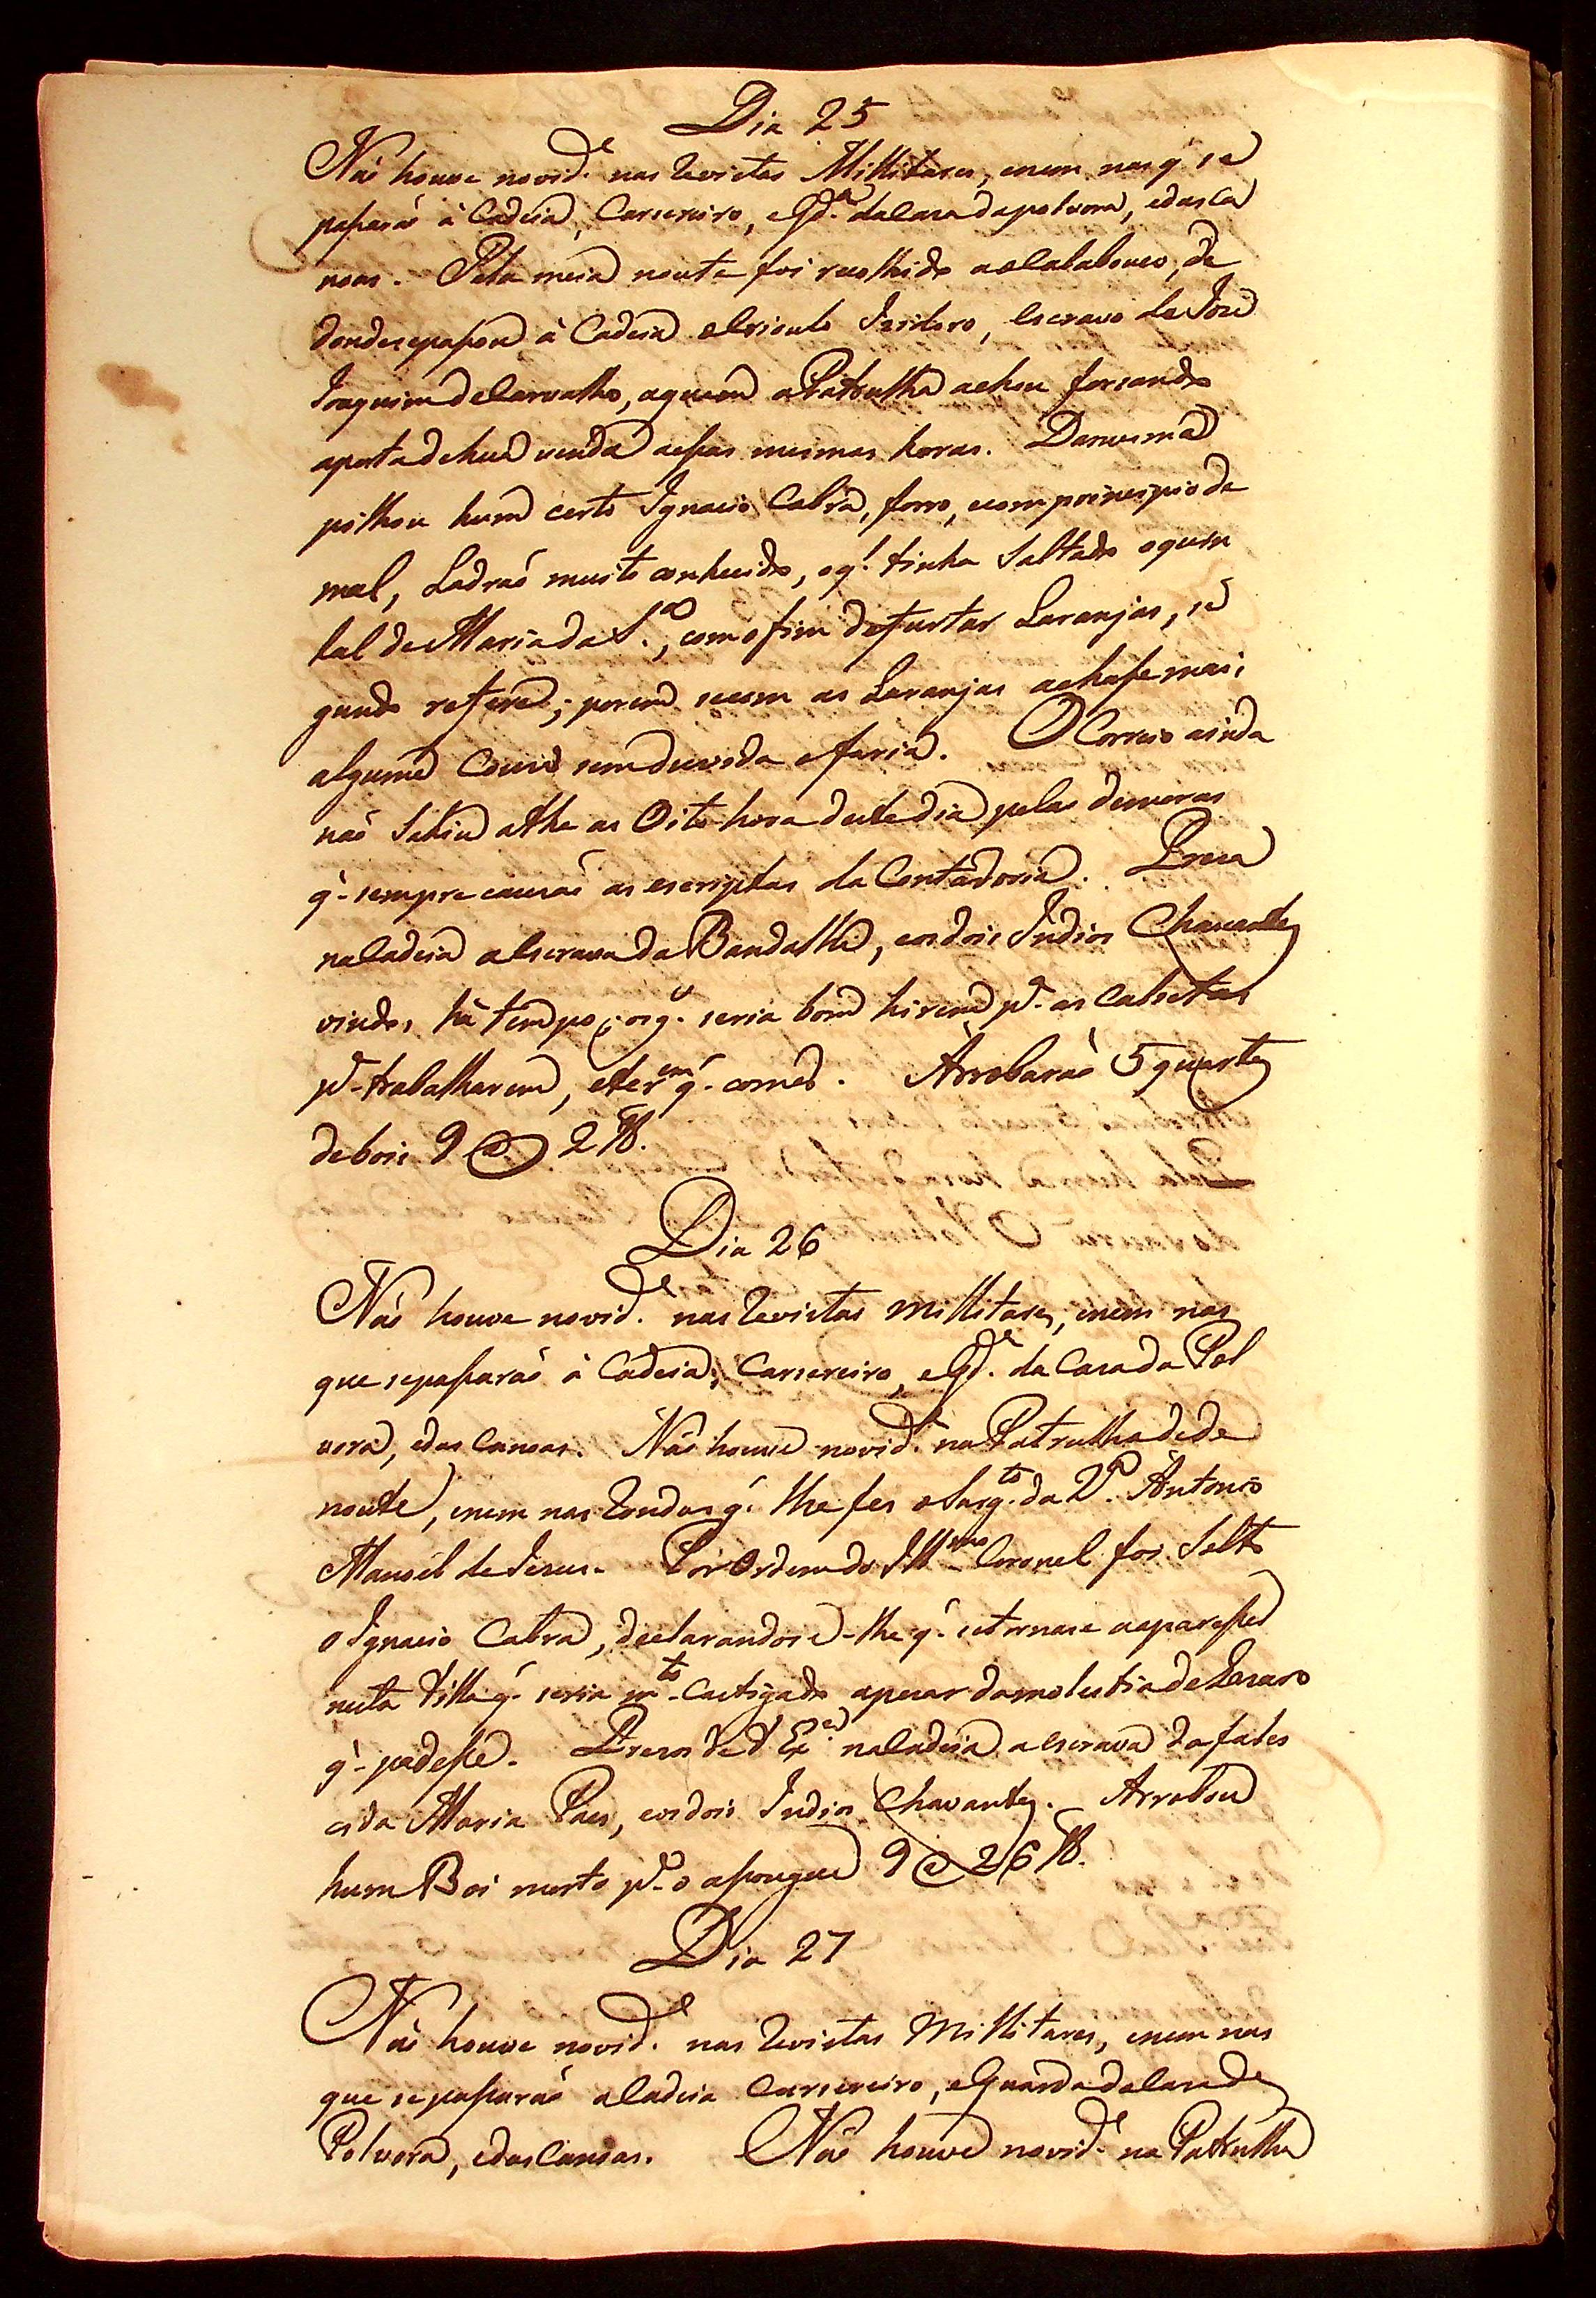 Dia 25
Não houve novid.e nas Revistas Millitares, enem nas q' se
pasarão à Cadeia, Carsereiro, eGd.a daCasa dapolvora, edas Ca
noas. Pela meia noute foi recolhido aoCalabouco, de
donde sepasou à Cadeia oCrioulo Izidoro, escravo de José
Joaquim deCarvalho, aquem aPatrulha achou forcando
aporta dehua venda aessas mesmas horas. Damesma
pilhou hum certo Ignacio Cabra, forro, ecom principio de
mal, Ladraõ muito conhecido, oq.l tinha Saltado oquin
tal de Maria da S.a, com ofim defurtar Laranjas, se
gundo refere; porem secom as Laranjas achase mais
alguma Couza sem duvida efaria. O Correio ainda
naõ Sahiu athe as Oito hora deste dia pelas demoras
q' sempre causaõ as escriptas da Contadoria. Preza
naCadeia aescrava da Bandalha, eos dois Indios Chavantes
vindos há tempo; os q.' seria bom hirem p.a as Calcetas
p.a trabalharem, eterem q.' comer. Arrobaraõ 5 quartos
debois 9 @ 2 lb.
Dia 26
Não houve novid.e nas Revistas Millitares, enem nas
que sepasaraõ à Cadeia, Carsereiro, eGd.a da Casa da Pol
vora, edas Canoas. Não houve novid.e na Patrulha de de
noute, enem nas Rondas q.' lhe fes oSarg.to da 2.a Antonio
Manoel de Jesus. Por Ordem do Ill.mo Coronel foi Solto
o Ignacio Cabra, declarandose-lhe q.' setornase aaparesser
nesta Villa q.' seria m.to Castigado apezar damolestia de Lazaro
q.' padesse. Prezos de V Ex.a naCadeia aescrava da fales
cida Maria Paes, eos dois Indios Chavantes. Arrobou
hum Boi morto p.a o asougue 9 @ 26 lb.
Dia 27
Não houve novid.e nas Revistas Millitares, enem nas
que sepasaraõ aCadeia Carsereiro, eGuarda daCasa da
Polvora, edas Canoas. Não houve novid.e na Patrulha